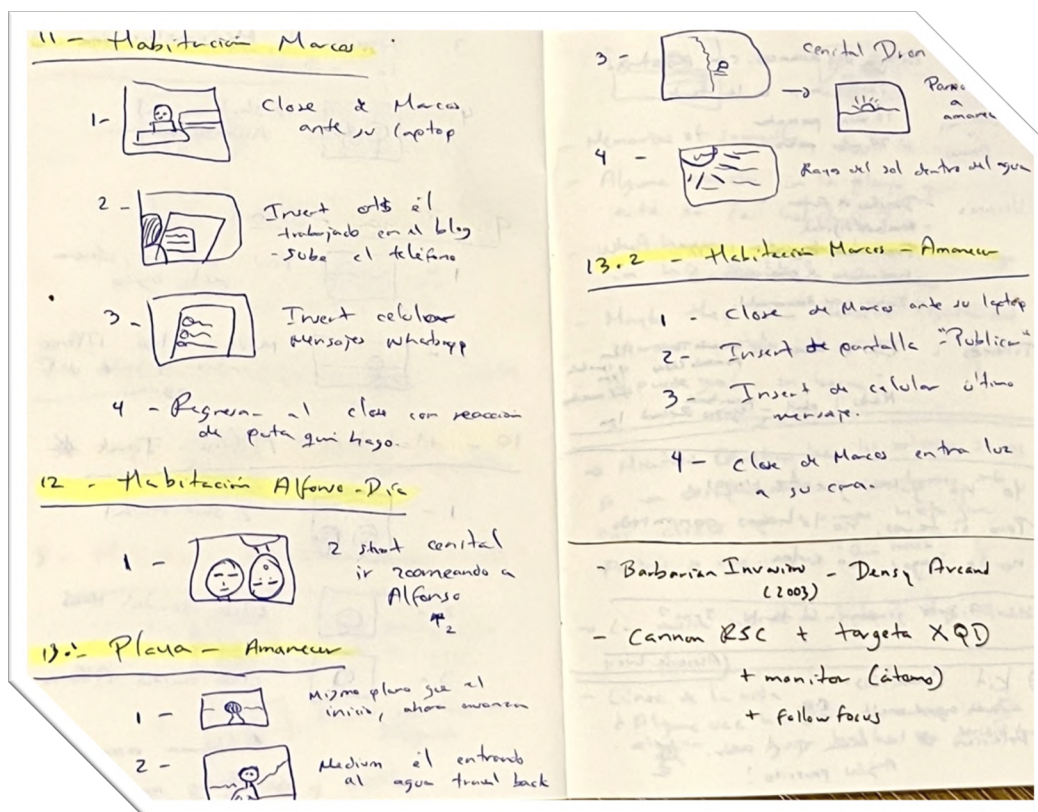 11 - Habitación Marcos
1- Close de Marcos
ante su laptop
2 - Insert
trabajado en el blog
- Sube el teléfono
3 - Insert celular
mensajes whatsapp
4 - Regresa al close con reacción
de puta qui hago.
12 - Habitación Alfonso - Día
1 - 2 shot cenital
ir zoomeando a
Alfonso
2
13. Playa - Amanecer
1 - Mismo plano que el
inicio, ahora avanza
2 - Medium él entrando
al agua travel back
3 - cenital Dron
→
a
4 - Rayo del sol dentro del agua
13.2 - Habitación Marcos - Amanecer
1 - Close de Marcos ante su
2 - Insert de pantalla "Publicar"
3 - Insert de celular último
mensaje.
4 - Close de Marcos entra luz
a su cara.
- Barbarian Invasion - Densy Arcand
(2003)
- Cannon + targeta XQD
+ monitor (átomo)
+ follow focus